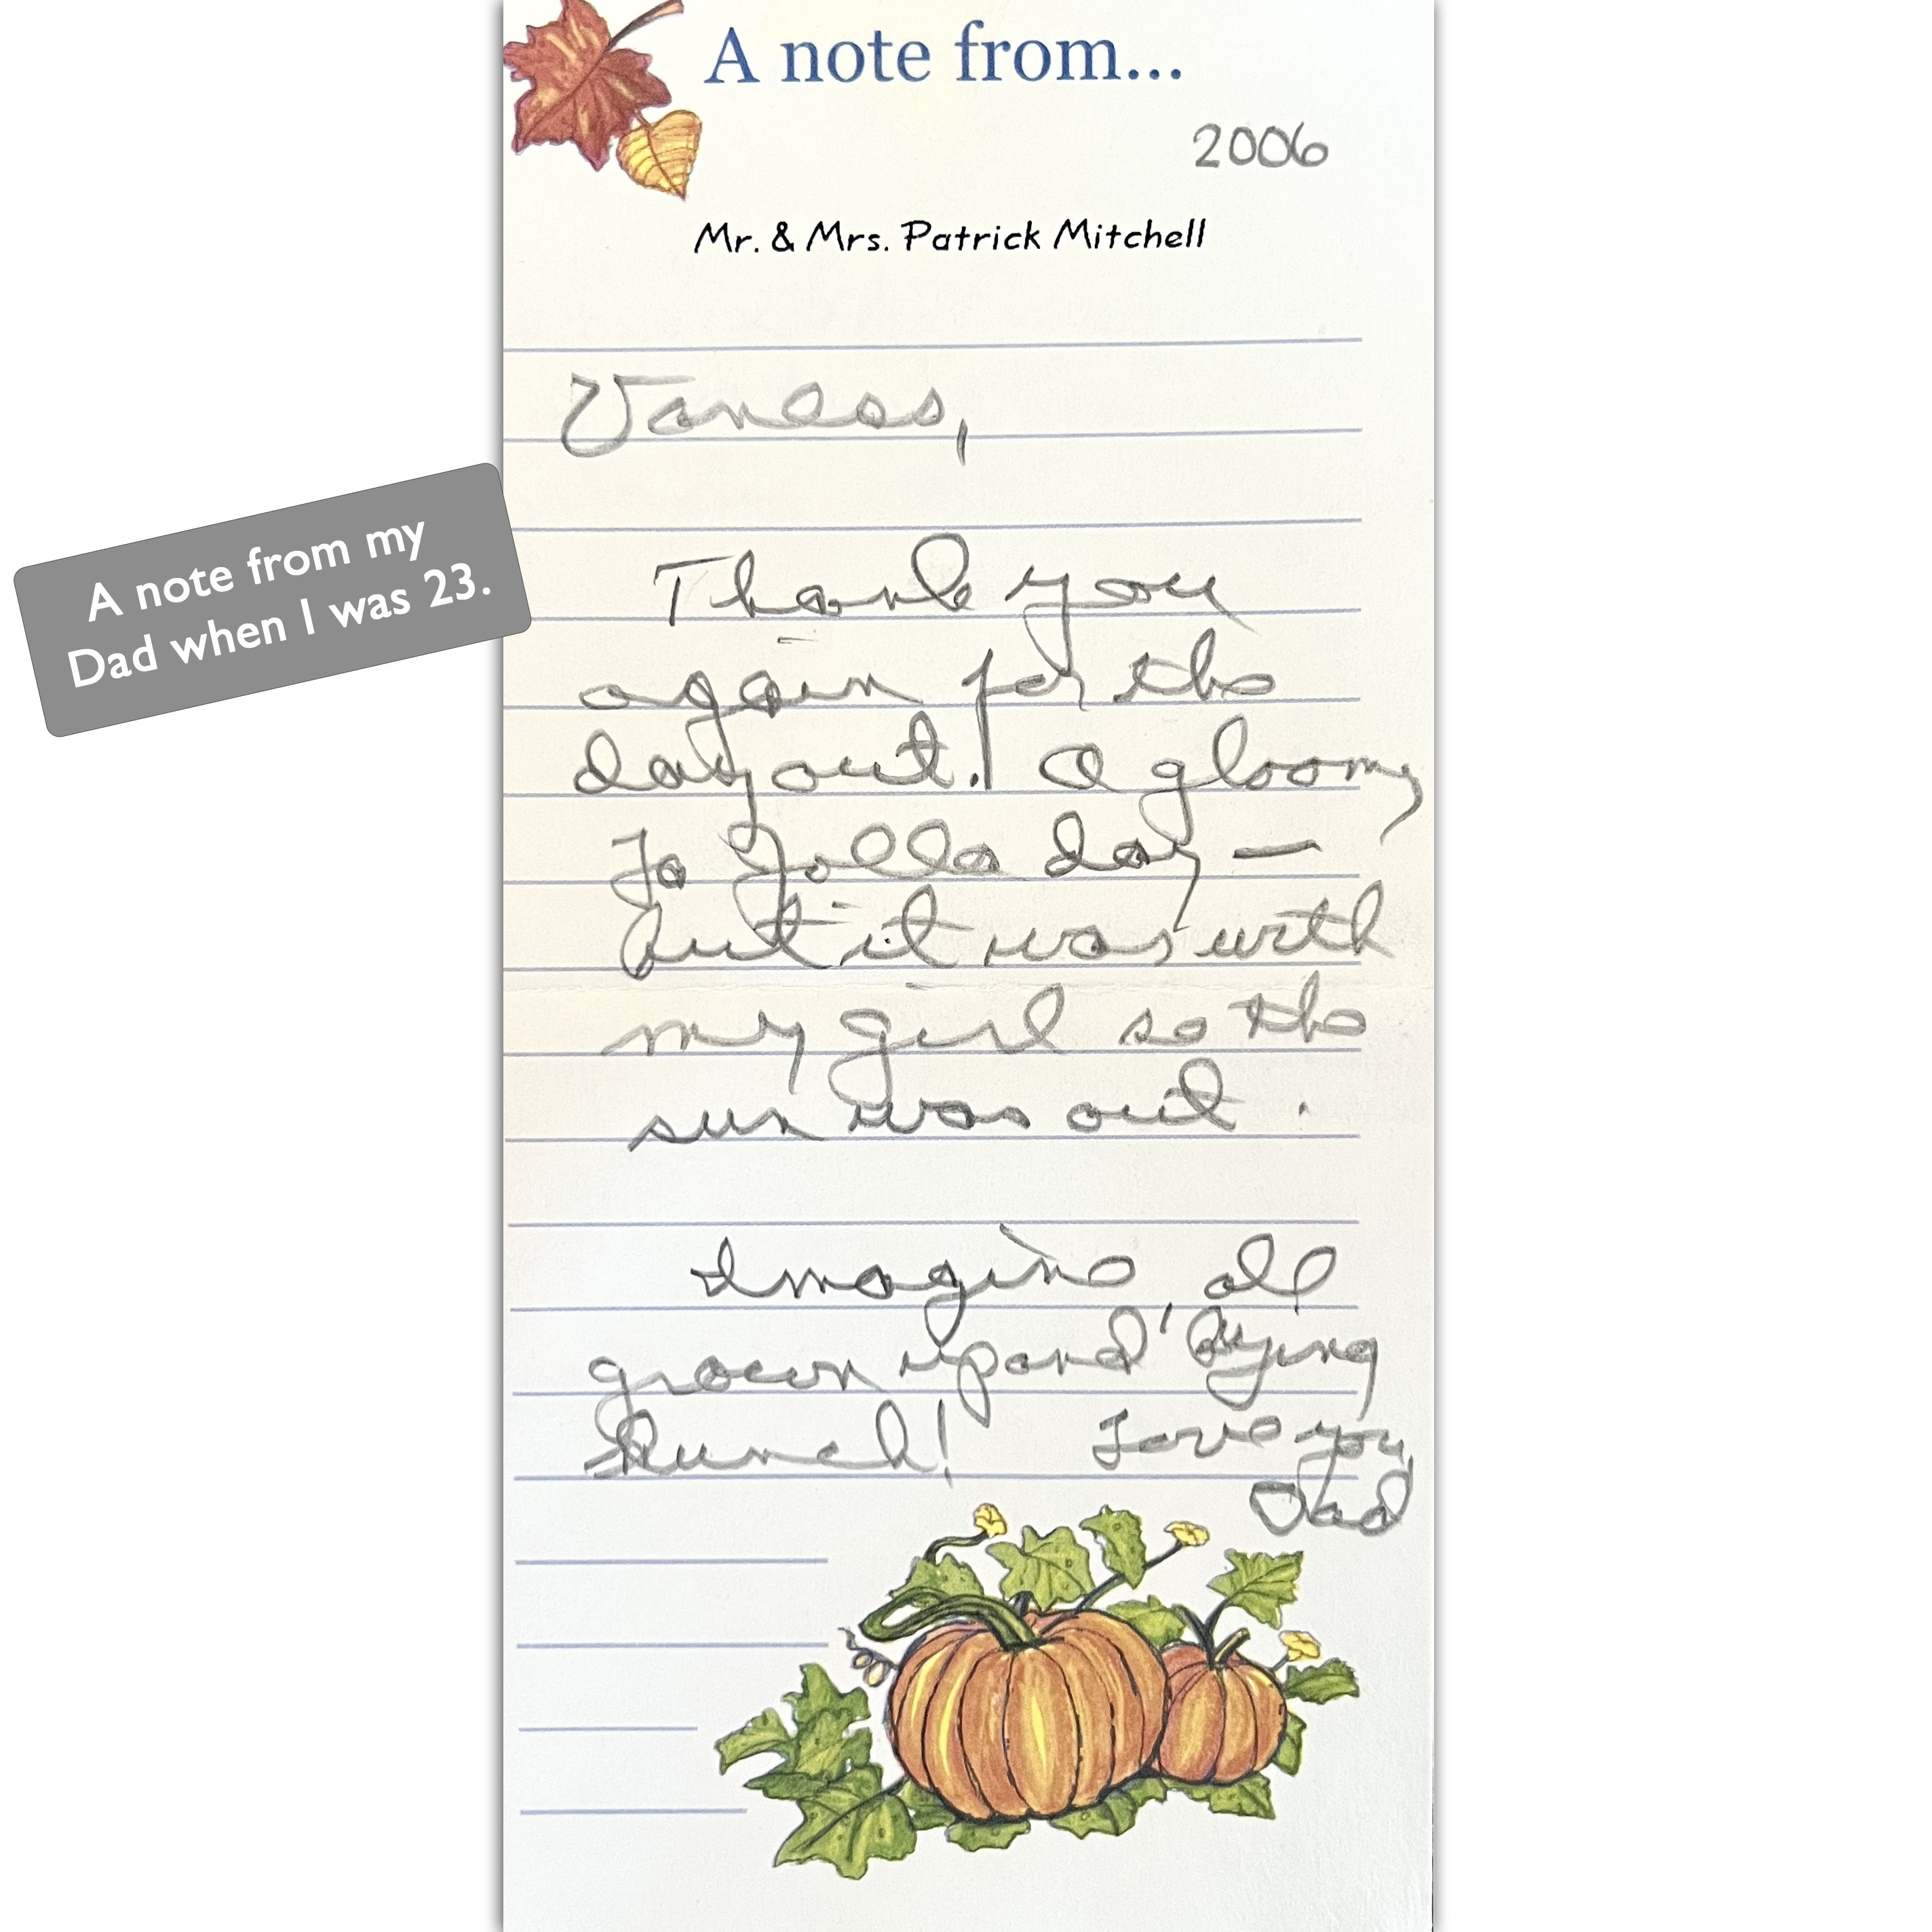 A note from...
2006
Mr. & Mrs. Patrick Mitchell
Vaness,
A note from my
Dad when I was 23.
Thank you
again for the
day out. A gloomy
La Jolla day —
but it was with
my girl so the
sun was out.
Imagine all
grown up and buying
lunch! Love you,
Dad